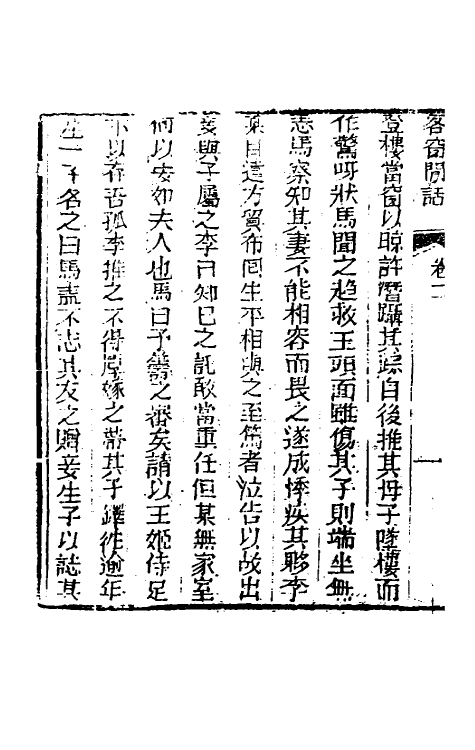 客窗閒話 卷二 一
登樓當窗以晾許潛躡其踪自後推其母子墜樓而
作驚呀狀馬聞之趋救王頭面雖傷其子則端坐無
恙馬察知其妻不能相容而畏之遂成悸疾其夥李
某自遠方貿布回生平相與之至篤者泣告以故出
妾與子屬之李曰知己之託敢當重任但某無家室
何以安如夫人也馬曰予籌之審矣請以王姬侍足
下以存吾孤李推之不得遂嫁之幷其子歸逾年
生一子名之曰馬誌不志其友之贈妾生子以誌其